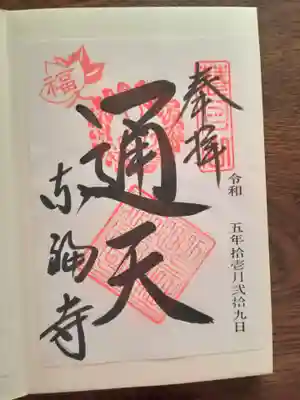 奉拝
令和 五年拾壱月弐拾九日
通天
东福寺
福